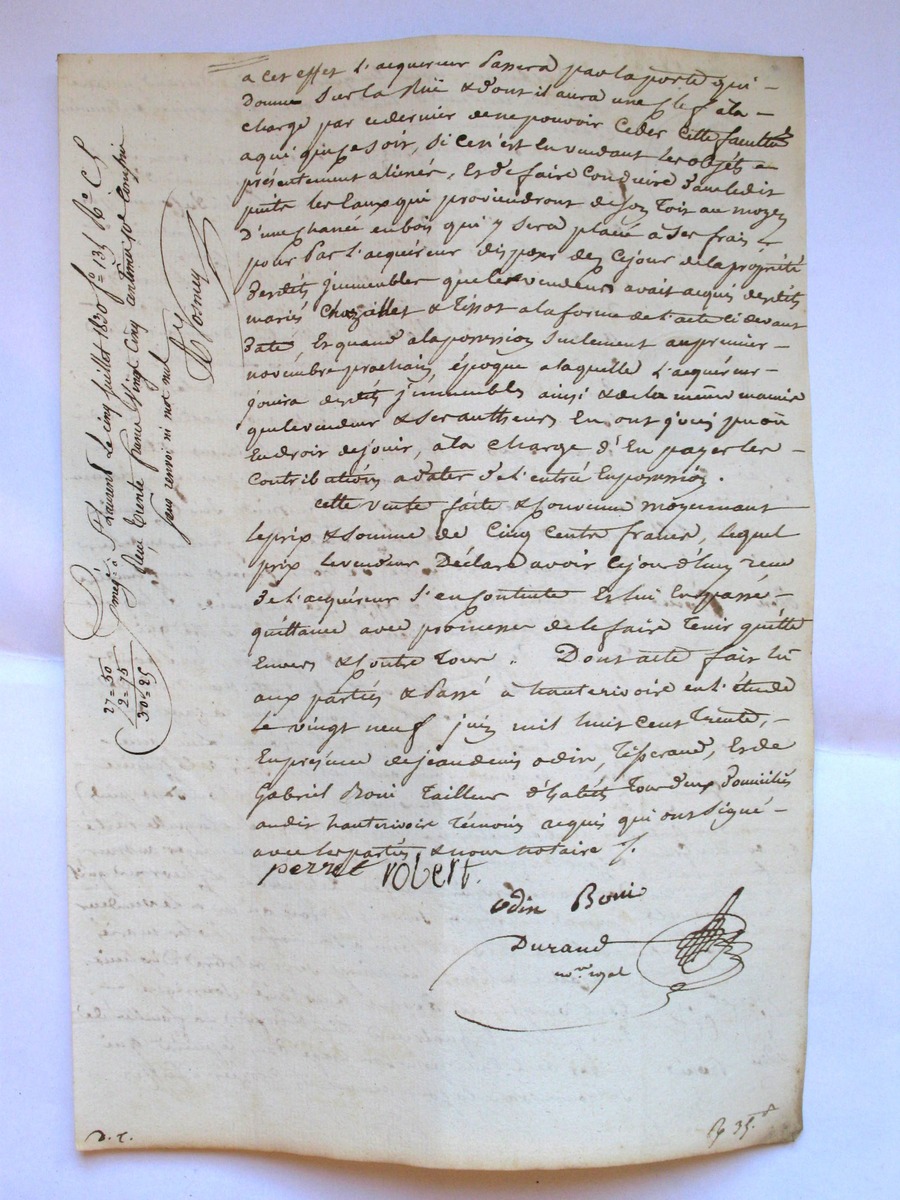 a cet effet l'acquereur Passera par la porte qui –
donne sur la Rüe & dont il aura une clef a la –
charge par ce dernier de ne pouvoir Ceder cette faculté
a qui que ce soir, si ce n'est En vendant les objets –
présentement aliénés, Et de faire Conduire dans ledit
puits les Eaux qui proviendront de son Toit au moyen
d'une chanée en bois qui y sera placée a ses frais
pour Par l'acquéreur disposer des ce jour de la propriété
desdits jmmeubles que le vendeur avait acquis desdits
mariés & Tissot a la forme de l'acte ci devant
daté, Et quand a la possession seulement au premier –
novembre prochain, époque a laquelle l'acquéreur –
jouira desdits jmmeubles ainsi & de la même manière
que le vendeur & ses autheurs En ont joui ou
En droit de jouir, a la charge d'En payer les –
Contributions a dater de l'entrée En possession.
cette vente faite & Convenue moyennant
le prix & somme de Cinq Cents francs, lequel
prix le vendeur Déclare avoir Cejourd'huy reçu
de l'acquéreur s'en Contente Et lui En passe –
quittance avec promesse de le faire Tenir quitte
Envers & Contre Tous. Dont acte fait lu
aux parties & Passé a hauterivoire en l'étude
le vingt neuf juin mil huit cent Trente, –
En présence de jean denis odin, Tisserand, Et de
Gabriel Boni Tailleur d'habits Tous deux domiciliés
audit hauterivoire Témoins acquis qui ont signé –
avec les parties & nous notaire
perret robert.
odin Boni
Durand
no.re royal
D. T.
Rp 35.
Enregé. a St Laurent Le cinq juillet 1830 fo. 135 Ro. C
Reçu trente francs Vingt Cinq centimes 10e Compris
sans renvoi ni mot nul
27 = 50
2 = 75
30 = 25